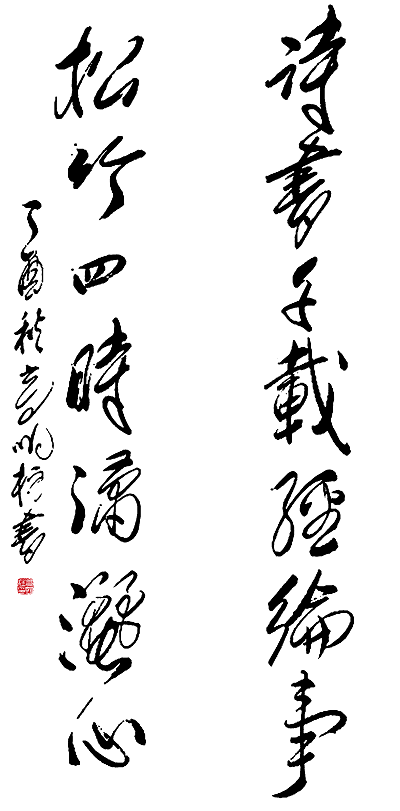 詩書千載經綸事
松竹四時瀟灑心
丁酉秋高明桓書